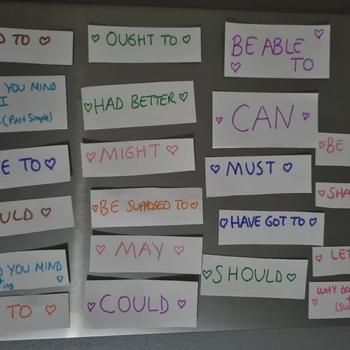 D TO
OUGHT TO
BE ABLE
TO
YOU MIND
I
(Past Simple)
HAD BETTER
CAN
MIGHT
BE
E TO
MUST
BE SUPPOSED TO
SHA
ULD
HAVE GOT TO
MAY
LET
YOU MIND
ing
SHOULD
TO
COULD
WHY DO